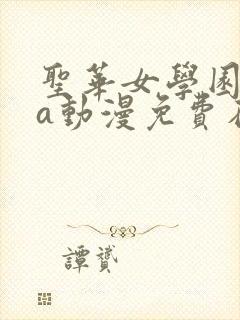 聖華女學園
a動漫免費
譚贇